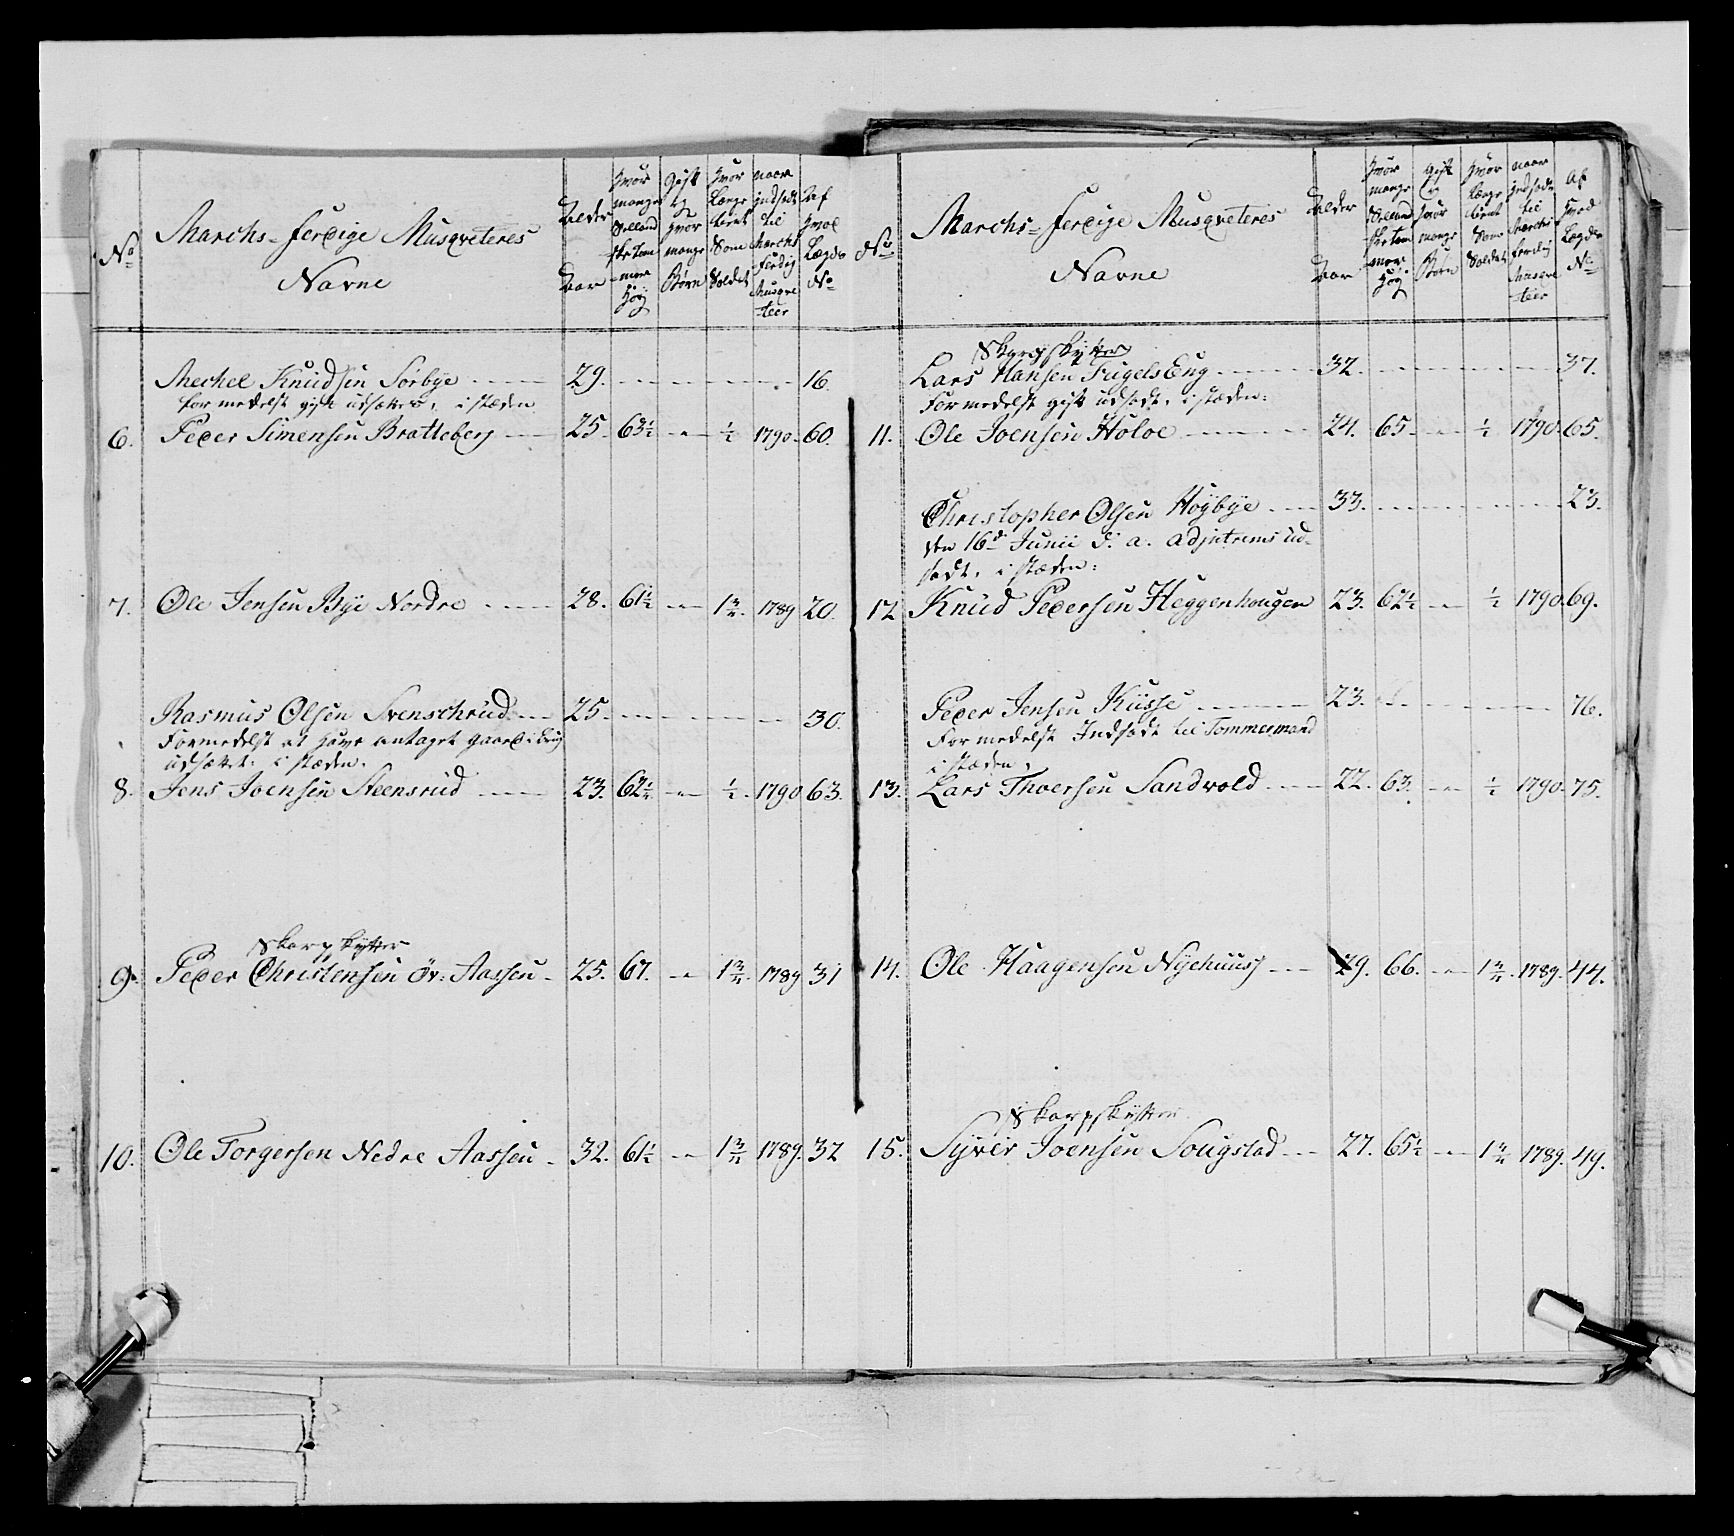 No
Marchs=ferdige Musqveteres
Navne
Alder
Aar
hvor
mange
Selland
ske tom
mer
høy
gift
og
hvor
mange
Børn
hvor
længe
tient
Som
Soldat
naar
indsadt
til
Marchs
ferdig
Musqve
teer
Af
hvad
Lægds
No
Mechel Knudsen Sørbye 29. 16.
formedelst gift udsættes, i stæden
6. Peder Simensen Bratteberg 25. 63½ ½ 1790. 60.
7. Ole Jensen Bye Nordre 28. 61½ 1 3/12. 1789 20.
Rasmus Olsen Svenschrud 25. 30.
Formedelst at have antaget gaard i brug
udsættet. i stæden.
8. Jens Joensen Steensrud 23. 62½ ½ 1790 63.
Skarpskytter
9. Peder Christensen Öv: Aassen 25. 67. 1 3/12. 1789 31
10. Ole Torgersen Nedre Aassen 32. 61½ 1 3/12 1789. 32
No
Marchs=ferdige Musqveteres
Navne
Alder
Aar
hvor
mange
Selland
ske tom
mer
høy
gift
og
hvor
mange
Børn
hvor
længe
tient
Som
Soldat
naar
indsadt
til
Marchs
ferdig
Musqve
teer
Af
hvad
Lægds
No
Skarpskytter
Lars Hansen FugelsEng 32. 37.
Formedelst gift udsadt, i stæden:
11. Ole Joensen Holoe 24. 65 ½ 1790. 65.
Christopher Olsen Høybye 33. 23.
den 16de Junii d: a. adjutrums ud-
sadt, i stæden:
12 Knud Pedersen Heggenhougen 23. 62½ ½ 1790. 69.
Peder Jensen Kusse 23. 76.
Formedelst Indsadt til Tømmermand
i stæden,
13. Lars Thoersen Sandvold 22. 63. ½ 1790. 75.
14. Ole Haagensen Nyehuus 29. 66. 1 3/12 1789. 44.
Skarpskytter
15. Syver Joensen Sougstad 27. 65½ 1 3/12 1789. 49.